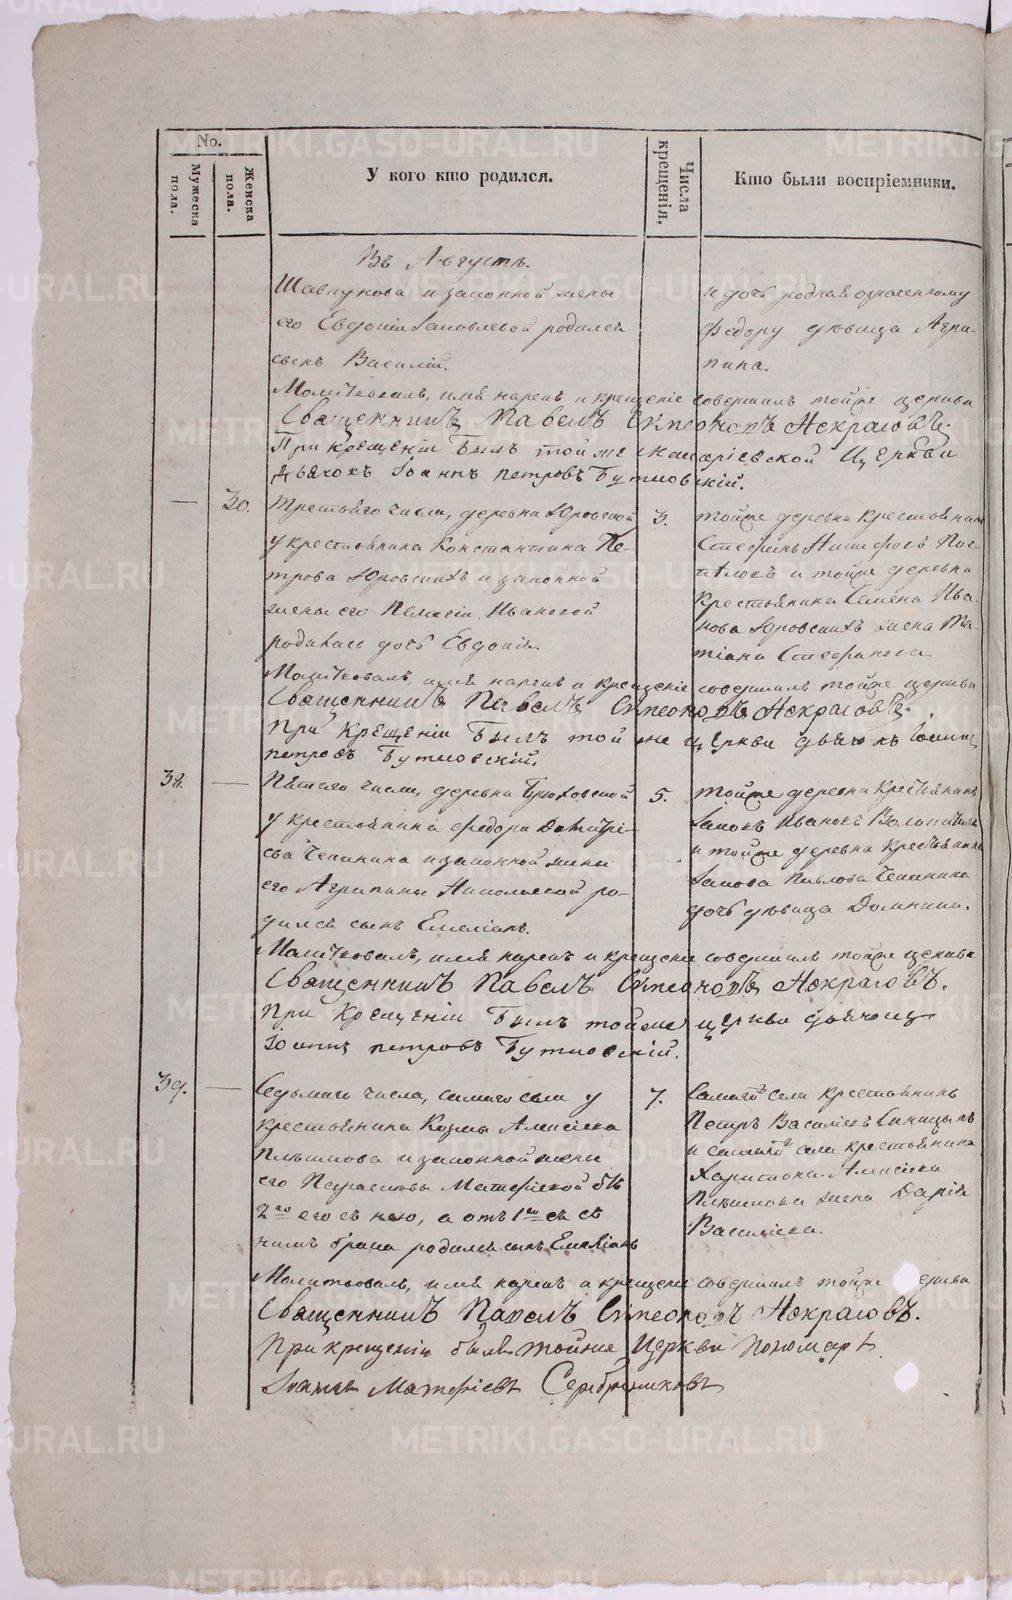 No.
Мужеска пола.
Женска пола.
У кого кто родился.
Числа крещенія.
Кто были воспріемники.
Въ Августѣ.
Шавкунова и законной жены
его Евдокіи Іаковлевой родился
сынъ Василій.
и дочь родная означенному
Федору дѣвица Агри-
пина.
Молитвовалъ, имя нарекъ и крещеніе совершилъ тойже церкви
Священникъ Павелъ Симеоновъ Некрасовъ.
При крещеніи Былъ той же Макаріевской Церкви
Дьячокъ Іоаннъ петровъ Бутковскій.
30.
Третьяго числа, деревни Юровской
у крестьянина Константина Пе-
трова Юровскихъ и законной
жены его Пелагіи Ивановой
родилась дочь Евдокія.
3.
тойже деревни крестьянинъ
Стефанъ Никифоровъ
и тойже деревни
крестьянина Семена Ива-
нова Юровскихъ жена Та-
тіана Стефанова.
Молитвовалъ, имя нарекъ и крещеніе совершилъ тойже церкви
Священникъ Павелъ Симеоновъ Некрасовъ.
При Крещеніи Былъ той же церкви дьячокъ Іоаннъ
петровъ Бутковскій.
38.
Пятаго числа, деревни
у крестьянина Федора Димитрі-
ева Чепинина и законной жены
его Агрипины Никольевой ро-
дился сынъ Емеліанъ.
5.
тойже деревни крестьянинъ
Іаковъ Ивановъ
и тойже деревни крестьянина
Іакова Павлова Чепинина
дочь дѣвица Домникія.
Молитвовалъ, имя нарекъ и крещеніе совершилъ тойже церкви
Священникъ Павелъ Симеоновъ Некрасовъ.
При Крещеніи Былъ тойже церкви дьячокъ
Іоаннъ петровъ Бутковскій.
39.
Седьмаго числа, самаго села у
крестьянина Козмы Алексіева
и законной жены
его Параскевы Матфіевой бѣ
2го его съ нею, а отъ 1го ея съ
нимъ брака родился сынъ Емеліанъ
7.
Самаго села крестьянинъ
Петръ Василіевъ Синицынъ
и самаго села крестьянина
Харитона Алексіева
жена Дарія
Василіева.
Молитвовалъ, имя нарекъ и крещеніе совершилъ тойже церкви
Священникъ Павелъ Симеоновъ Некрасовъ.
При крещеніи былъ тойже Церкви Пономарь
Іоаннъ Матфіевъ Серебрениковъ